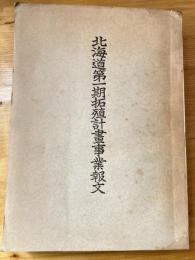 北海道第一期拓殖計畫事業報文